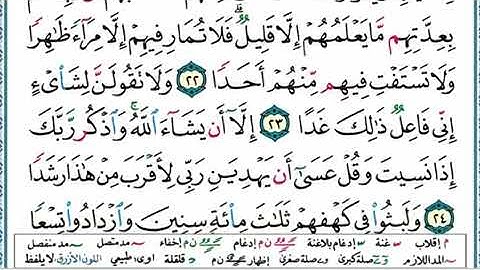 بِعِدَّتِهِم مَّا يَعْلَمُهُمْ إِلَّا قَلِيلٌ ۗ فَلَا تُمَارِ فِيهِمْ إِلَّا مِرَآءً ظَٰهِرًا
وَلَا تَسْتَفْتِ فِيهِم مِّنْهُمْ أَحَدًا ٢٢ وَلَا تَقُولَنَّ لِشَا۟ىْءٍ
إِنِّى فَاعِلٌ ذَٰلِكَ غَدًا ٢٣ إِلَّآ أَن يَشَآءَ ٱللَّهُ ۚ وَٱذْكُر رَّبَّكَ
إِذَا نَسِيتَ وَقُلْ عَسَىٰٓ أَن يَهْدِيَنِ رَبِّى لِأَقْرَبَ مِنْ هَٰذَا رَشَدًا
٢٤ وَلَبِثُوا۟ فِى كَهْفِهِمْ ثَلَٰثَ مِا۟ئَةٍ سِنِينَ وَٱزْدَادُوا۟ تِسْعًا
م إقلاب غنة إدغام بلاغنة ن م إدغام ن م إخفاء مد متصل مد منفصل
المد اللازم صلة كبرى صلة صغرى إظهار ن م قلقلة اوى: طبيعي اللون الأزرق: لا يلفظ